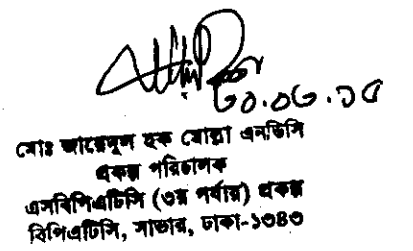 ৩০.০৬.১৫
মোঃ জায়েদুল হক মোল্লা এনডিসি
প্রকল্প পরিচালক
এসবিপিএটিসি (৩য় পর্যায়) প্রকল্প
বিপিএটিসি, সাভার, ঢাকা-১৩৪৩